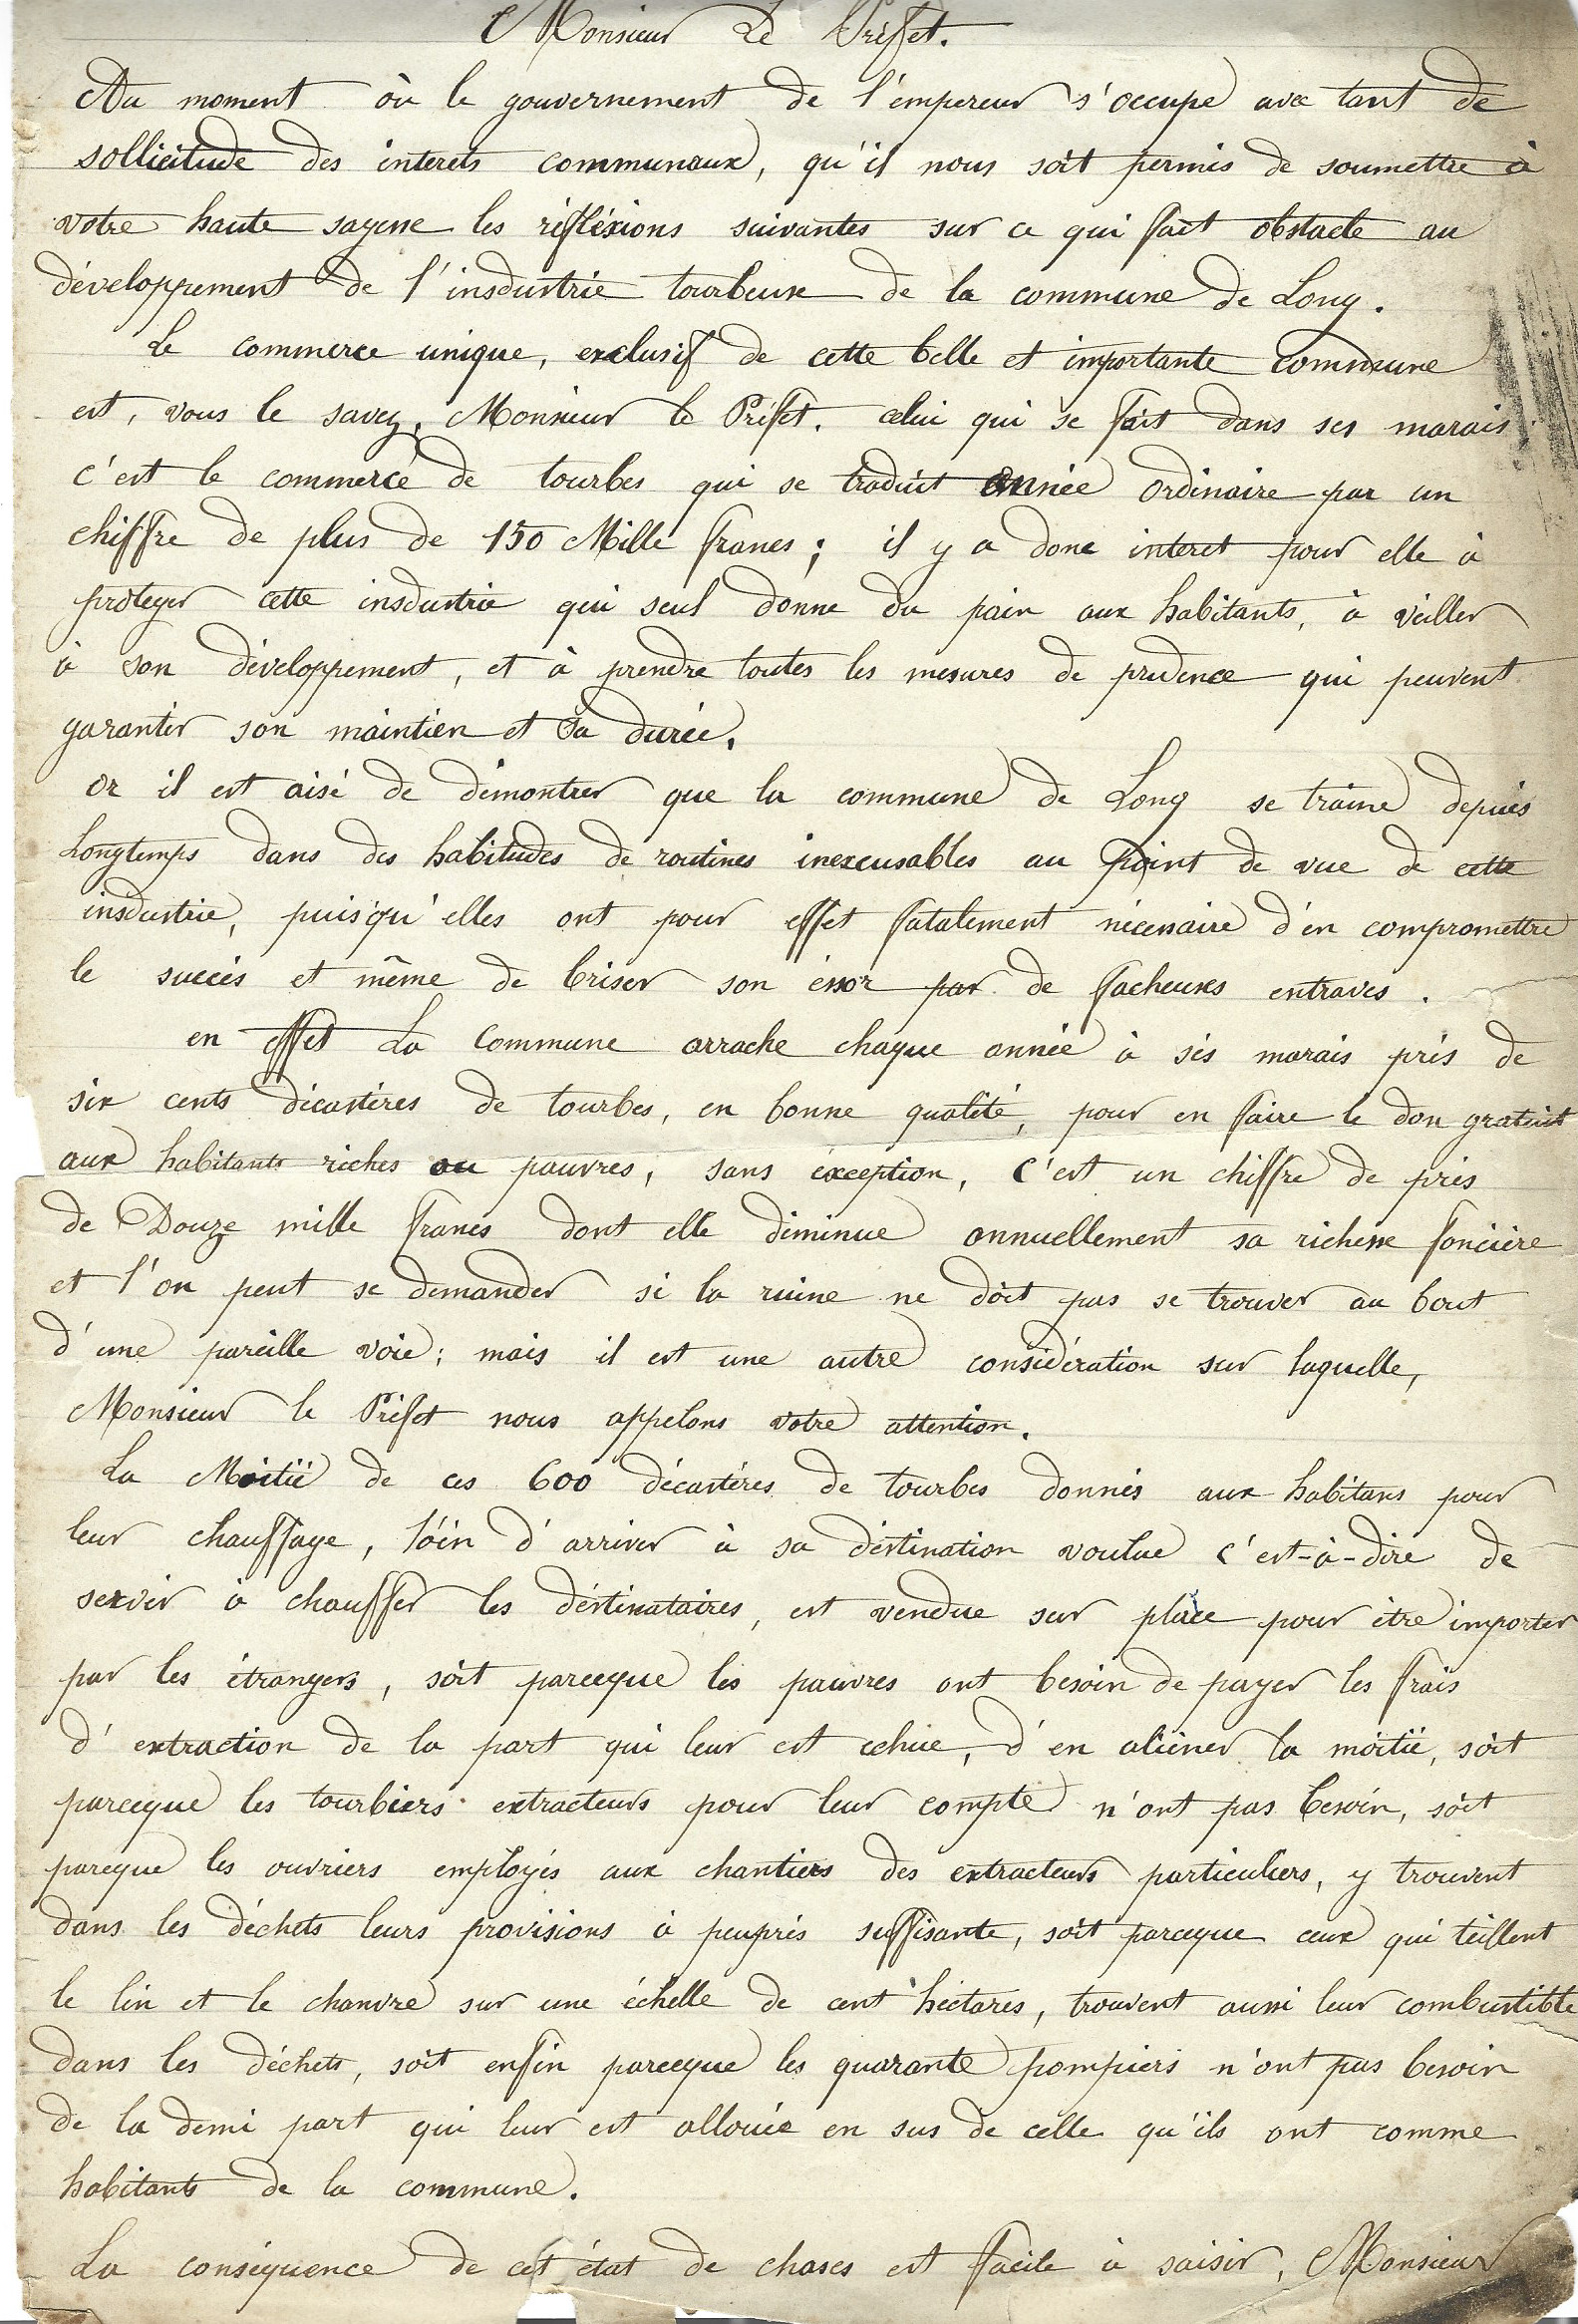 Monsieur Le Préfet.
Au moment où le gouvernement de l'empereur s'occupe avec tant de
sollicitude des interets communaux, qu'il nous soit permis de soumettre à
votre haute sagesse les réfléxions suivantes sur ce qui fait obstacle au
développement de l'insdustrie tourbeuse de la commune de Long.
Le commerce unique, exclusif de cette belle et importante commune
est, vous le savez, Monsieur le Préfet. celui qui se fait dans ses marais
c'est le commerce de tourbes qui se traduit année ordinaire par un
chiffre de plus de 150 Mille francs; il y a donc interet pour elle à
proteger cette insdustrie qui seul donne du pain aux habitants, à veiller
à son développement, et à prendre toutes les mesures de prudence qui peuvent
garantir son maintien et sa durée.
or il est aisé de démontrer que la commune de Long se traine depuis
Longtemps dans des habitudes de routines inexcusables au point de vue de cette
insdustrie, puisqu'elles ont pour effet fatalement nécessaire d'en compromettre
le succès et même de briser son éssor par de facheuses entraves.
en effet La Commune arrache chaque année à sés marais près de
six cents décastères de tourbes, en bonne qualité, pour en faire le don gratuit
aux habitants riches ou pauvres, sans éxception, c'est un chiffre de près
de Douze mille francs dont elle diminue annuellement sa richesse foncière
et l'on peut se demander si la ruine ne doit pas se trouver au bout
d'une pareille voie; mais il est une autre considération sur laquelle,
Monsieur le Préfet nous appelons votre attention.
La Moitié de ces 600 décastères de tourbes donnés aux habitans pour
leur chauffage, loin d'arriver à sa déstination voulue c'est-à-dire de
servir à chauffer les déstinataires, est vendue sur place pour être importer
par les étrangers, soit parceque les pauvres ont besoin de payer les frais
d'extraction de la part qui leur est echue, d'en aliéner la moitié, soit
parceque les tourbiers extracteurs pour leur compte n'ont pas besoin, soit
pareque les ouvriers employés aux chantiers des extracteurs particuliers, y trouvent
dans les déchets leurs provisions à peuprès suffisante, soit parceque ceux qui teillent
le lin et le chanvre sur une échelle de cent hectares, trouvent aussi leur combustible
dans les déchets, soit enfin parceque les quarante pompiers n'ont pas besoin
de la demi part qui leur est allouée en sus de celle qu'ils ont comme
habitants de la commune.
La conséquence de cet état de choses est facile à saisir, Monsieur